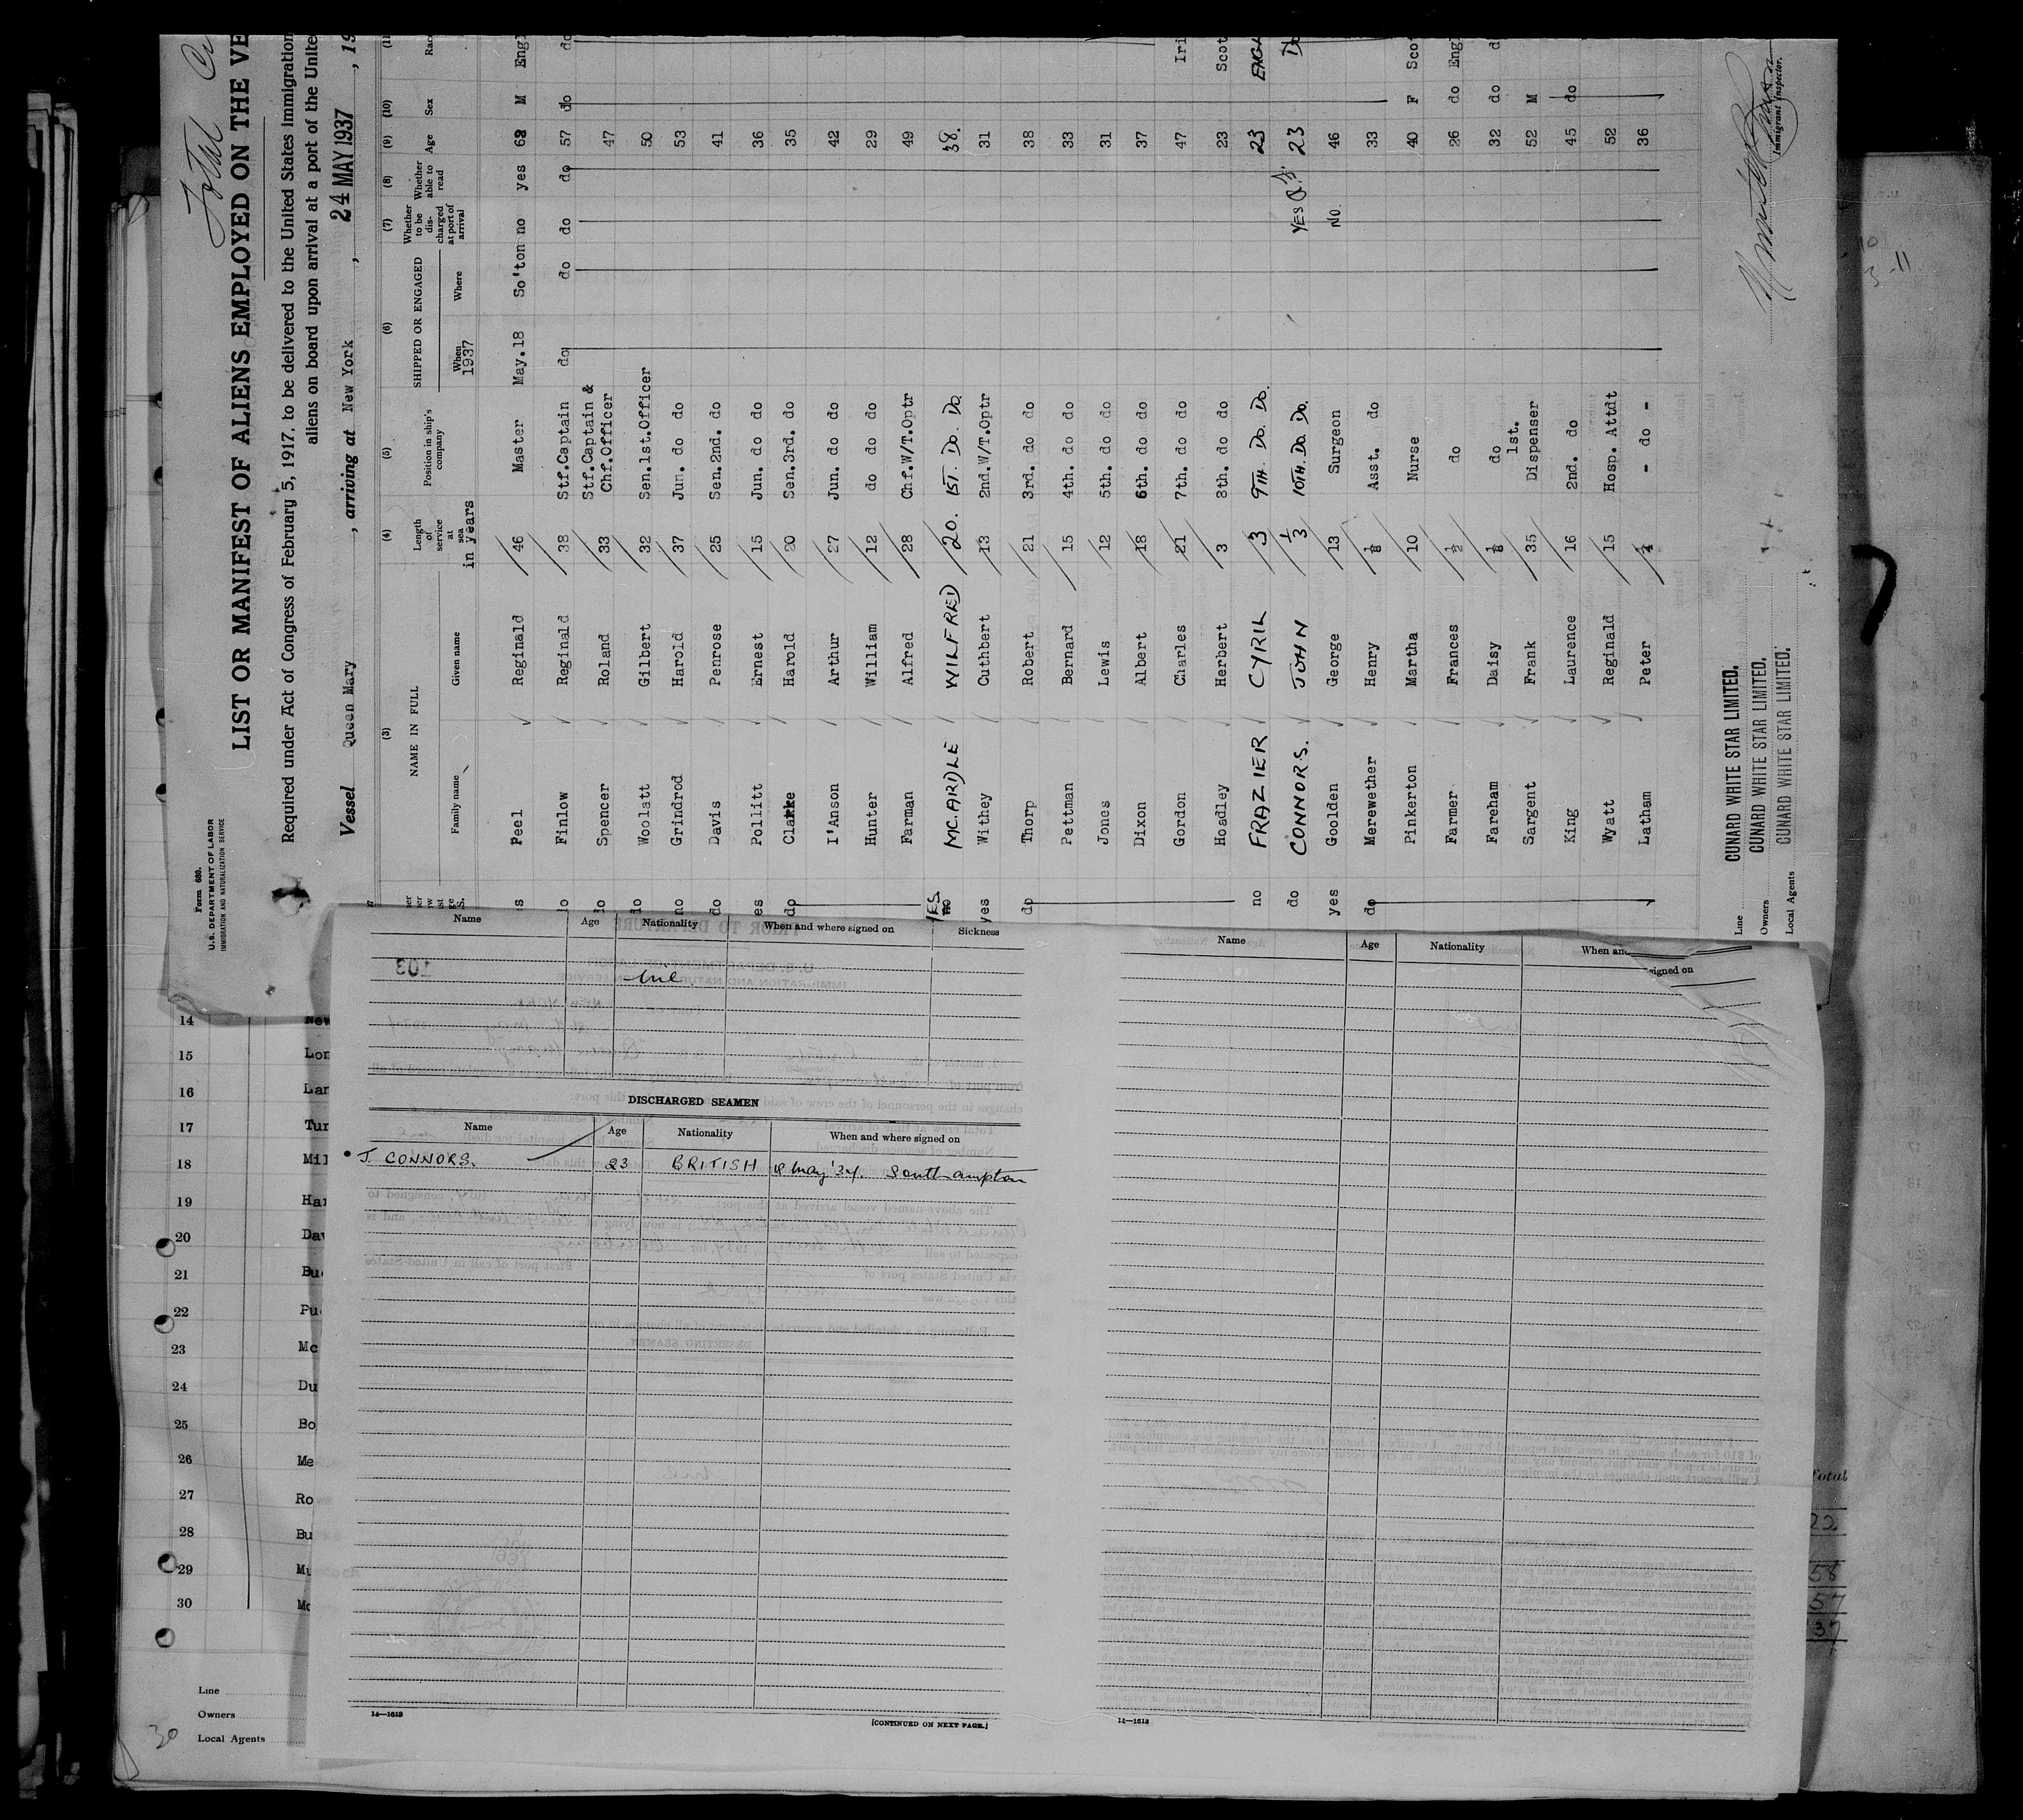 Total
Form 680.
U.S. DEPARTMENT OF LABOR
IMMIGRATION AND NATURALIZATION SERVICE
LIST OR MANIFEST OF ALIENS EMPLOYED ON THE VE
Required under Act of Congress of February 5, 1917, to be delivered to the United States immigration
aliens on board upon arrival at a port of the United
Vessel Queen Mary , arriving at New York , 24 MAY 1937 , 19
(3) (4) (5) (6) (7) (8) (9) (10) (11
NAME IN FULL Length of service at sea in years Position in ship's company SHIPPED OR ENGAGED Whether to be discharged at port of arrival Whether able to read Age Sex Rac
Family name Given name When 1937 Where
s Peel Reginald 46 Master May.18 So'ton no yes 62 M Engl
Finlow Reginald 38 Stf.Captain do do do do 57 do do
Spencer Roland 33 Stf.Captain & Chf.Officer 47
Woolatt Gilbert 32 Sen.1st.Officer 50
no Grindrod Harold 37 Jun. do do 53
do Davis Penrose 25 Sen.2nd. do 41
es Pollitt Ernest 15 Jun. do do 36
do Clarke Harold 20 Sen.3rd. do 35
I'Anson Arthur 27 Jun. do do 42
Hunter William 12 do do do 29
Farman Alfred 28 Chf.W/T.Optr 49
YES no MC.ARDLE WILFRED 20. 1ST. DO. DO. 38.
yes Withey Cuthbert 13 2nd.W/T.Optr 31
do Thorp Robert 21 3rd. do do 38
Pettman Bernard 15 4th. do do 33
Jones Lewis 12 5th. do do 31
Dixon Albert 18 6th. do do 37
Gordon Charles 21 7th. do do 47 Iri
Hoadley Herbert 3 8th. do do 23 Scot
no FRAZIER CYRIL 3 9TH. DO. DO. 23 ENGL
do CONNORS. JOHN 1/3 10TH. DO. DO. YES 23 Do
yes Goolden George 13 Surgeon NO. 46
do Merewether Henry 1/8 Asst. do 33
Pinkerton Martha 10 Nurse 40 F Scot
Farmer Frances 1/2 do 26 do Engl
Fareham Daisy 1/8 do 32 do d
Sargent Frank 35 1st. Dispenser 52 M
King Laurence 16 2nd. do 45 do
Wyatt Reginald 15 Hosp. Attdt 52
Latham Peter 1/4 - do - 36
Line CUNARD WHITE STAR LIMITED.
Owners CUNARD WHITE STAR LIMITED.
Local Agents CUNARD WHITE STAR LIMITED.
Immigrant Inspector.
Name Age Nationality When and where signed on Sickness
Nil
DISCHARGED SEAMEN
Name Age Nationality When and where signed on
J. CONNORS. 23 BRITISH 18 May '37. Southampton
14—1613
[CONTINUED ON NEXT PAGE.]
Name Age Nationality When and signed on
14—1613
14 New
15 Lon
16 Lan
17 Tur
18 Mil
19 Har
20 Dav
21 Bu
22 Pu
23 Mc
24 Du
25 Bo
26 Me
27 Ro
28 Bu
29 Mu
30 Mc
Line
Owners
Local Agents
30
Total
22
58
57
37